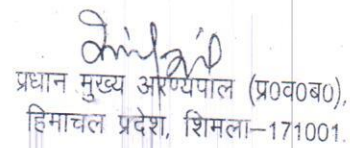 प्रधान मुख्य अरण्यपाल (प्र०व०ब०),
हिमाचल प्रदेश, शिमला–171001.